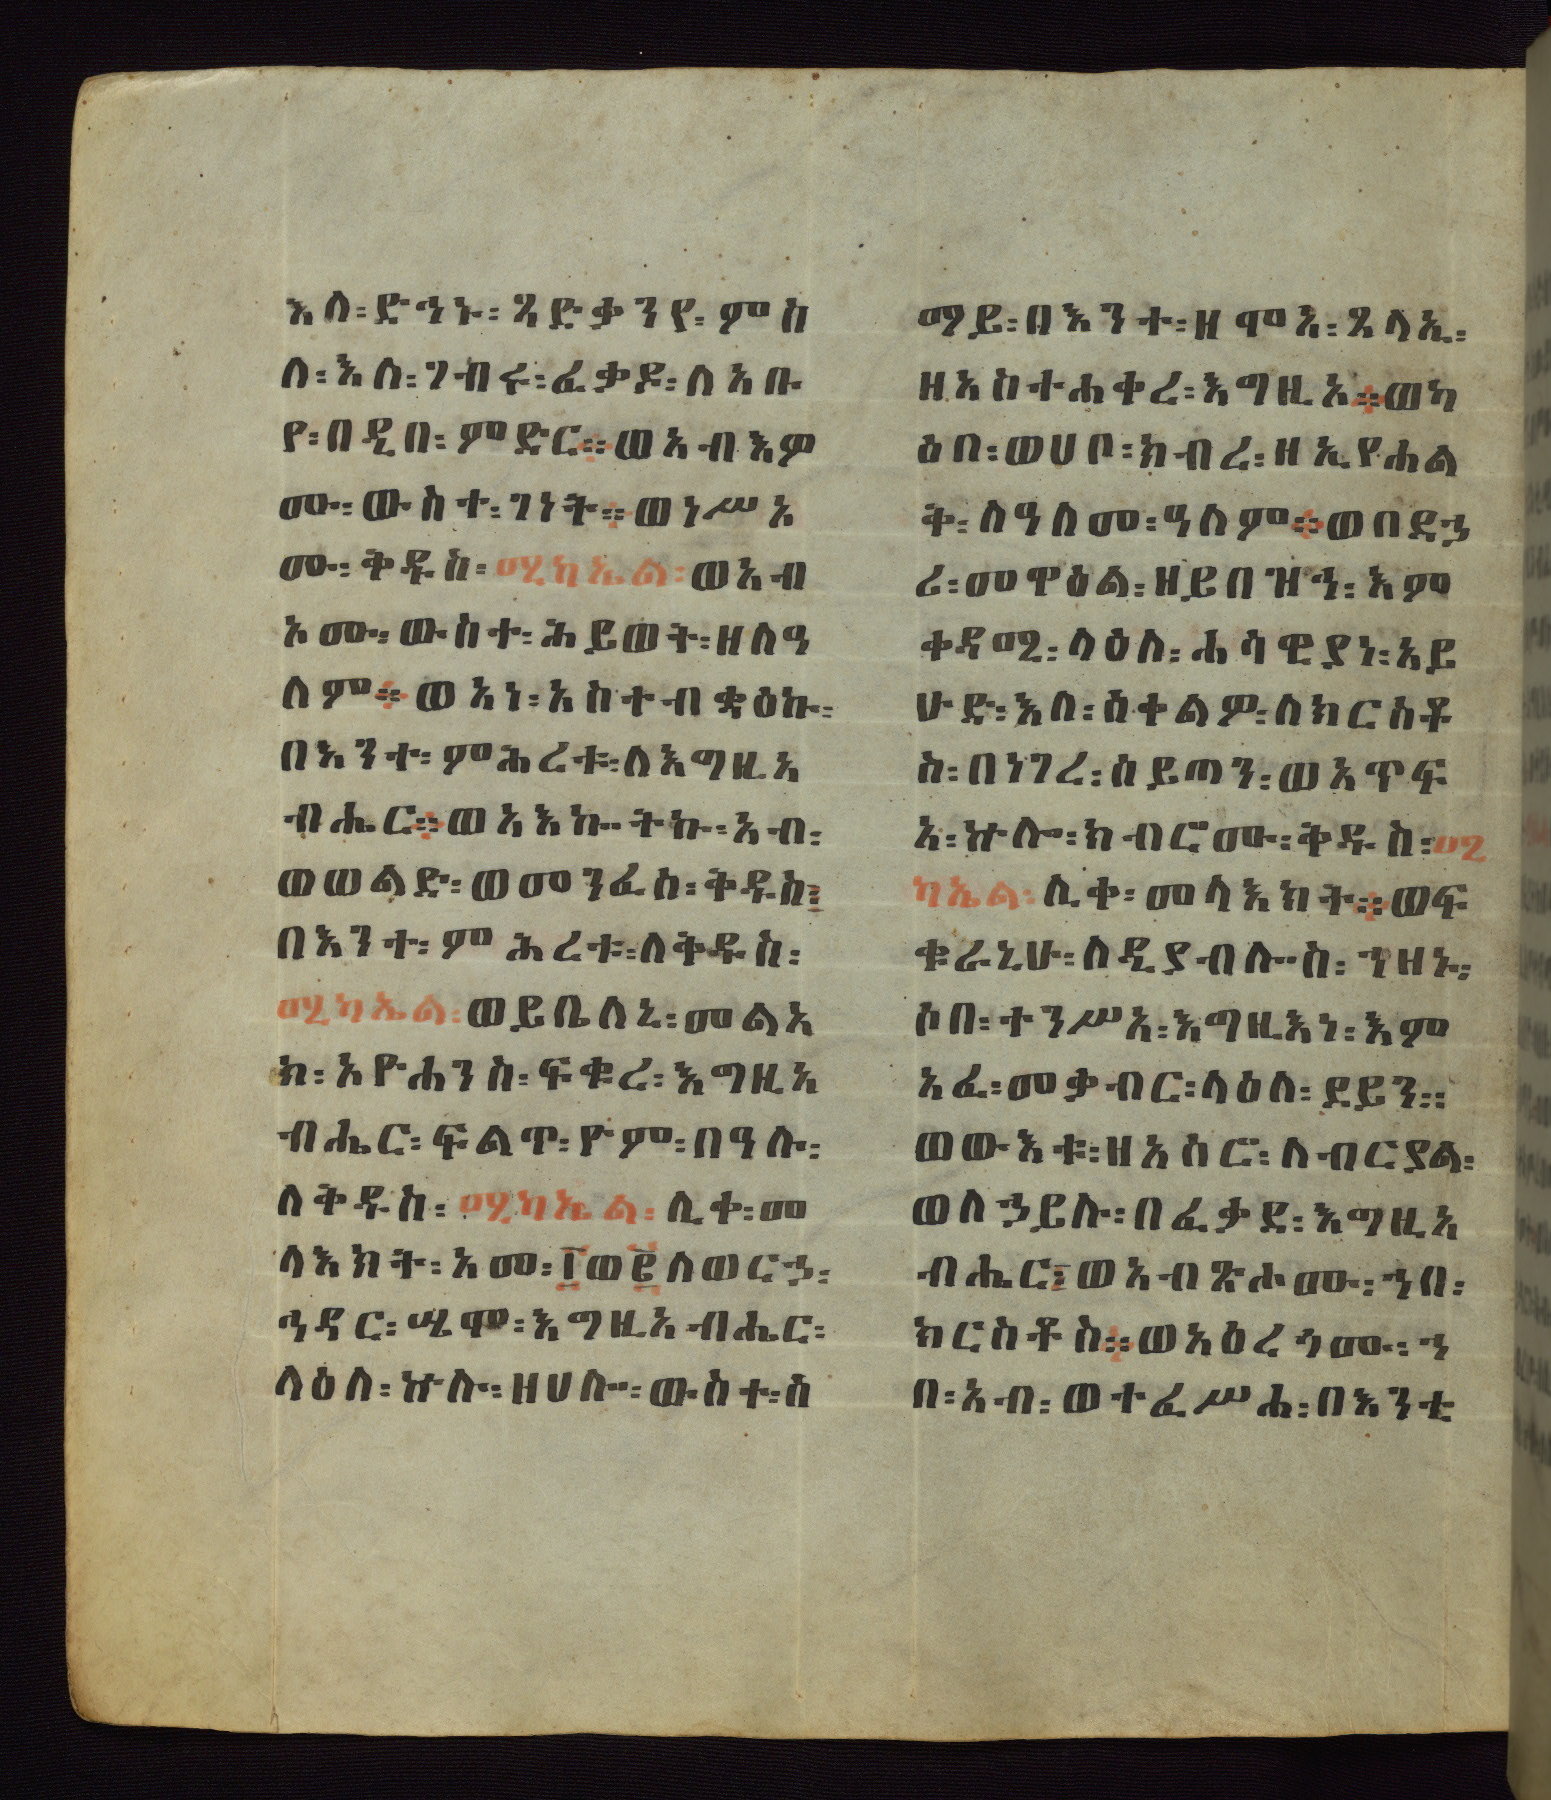 እለ፡ድኅኑ፡ጻድቃንየ፡ምስ
ለ፡እለ፡ገብሩ፡ፈቃዶ፡ለአቡ
የ፡በዲበ፡ምድር፨ወአብእዎ
ሙ፡ውስተ፡ገነት፨ወነሥአ
ሙ፡ቅዱስ፡ሚካኤል፡ወአብ
አሙ፡ውስተ፡ሕይወት፡ዘለዓ
ለም፨ወአነ፡አስተብቋዕኩ፡
በእንተ፡ምሕረቱ፡ለእግዚአ
ብሔር፨ወአእኰትኩ፡አብ፡
ወወልድ፡ወመንፈስ፡ቅዱስ፤
በእንተ፡ምሕረቱ፡ለቅዱስ፡
ሚካኤል፡ወይቤለኒ፡መልአ
ክ፡አዮሐንስ፡ፍቁረ፡እግዚአ
ብሔር፡ፍልጥ፡ዮም፡በዓሉ፡
ለቅዱስ፡ሚካኤል፡ሊቀ፡መ
ላእክት፡አመ፡፲ወ፪ለወርኃ፡
ኅዳር፡ሤሞ፡እግዚአብሔር፡
ላዕለ፡ኵሉ፡ዘሀሎ፡ውስተ፡ሰ
ማይ፡በእንተ፡ዘሞአ፡ጸላኢ፡
ዘአስተሐቀረ፡እግዚአ፨ወካ
ዕበ፡ወሀቦ፡ክብረ፡ዘኢየሐል
ት፡ለዓለመ፡ዓለም፨ወበደኃ
ሪ፡መዋዕል፡ዘይበዝኅ፡እም
ቀዳሚ፡ላዕለ፡ሐሳዊያነ፡አይ
ሁድ፡እለ፡ሰቀልዎ፡ለክርስቶ
ስ፡በነገረ፡ሰይጣን፡ወአጥፍ
አ፡ኵሎ፡ክብሮሙ፡ቅዱስ፡ሚ
ካኤል፡ሊቀ፡መላእክት፨ወፍ
ቁራኒሁ፡ለዲያብሎስ፡ኀዘኑ፡
ሶበ፡ተንሥአ፡እግዚእነ፡እም
አፈ፡መቃብር፡ላዕለ፡ደይን።
ወውእቱ፡ዘአሰሮ፡ለብርያል፡
ወለኃይሉ፡በፈቃደ፡እግዚአ
ብሔር፤ወአብጽሖሙ፡ኀበ፡
ክርስቶስ፨ወአዕረጎሙ፡ኀ
በ፡አብ፡ወተፈሥሐ፡በእንቲ